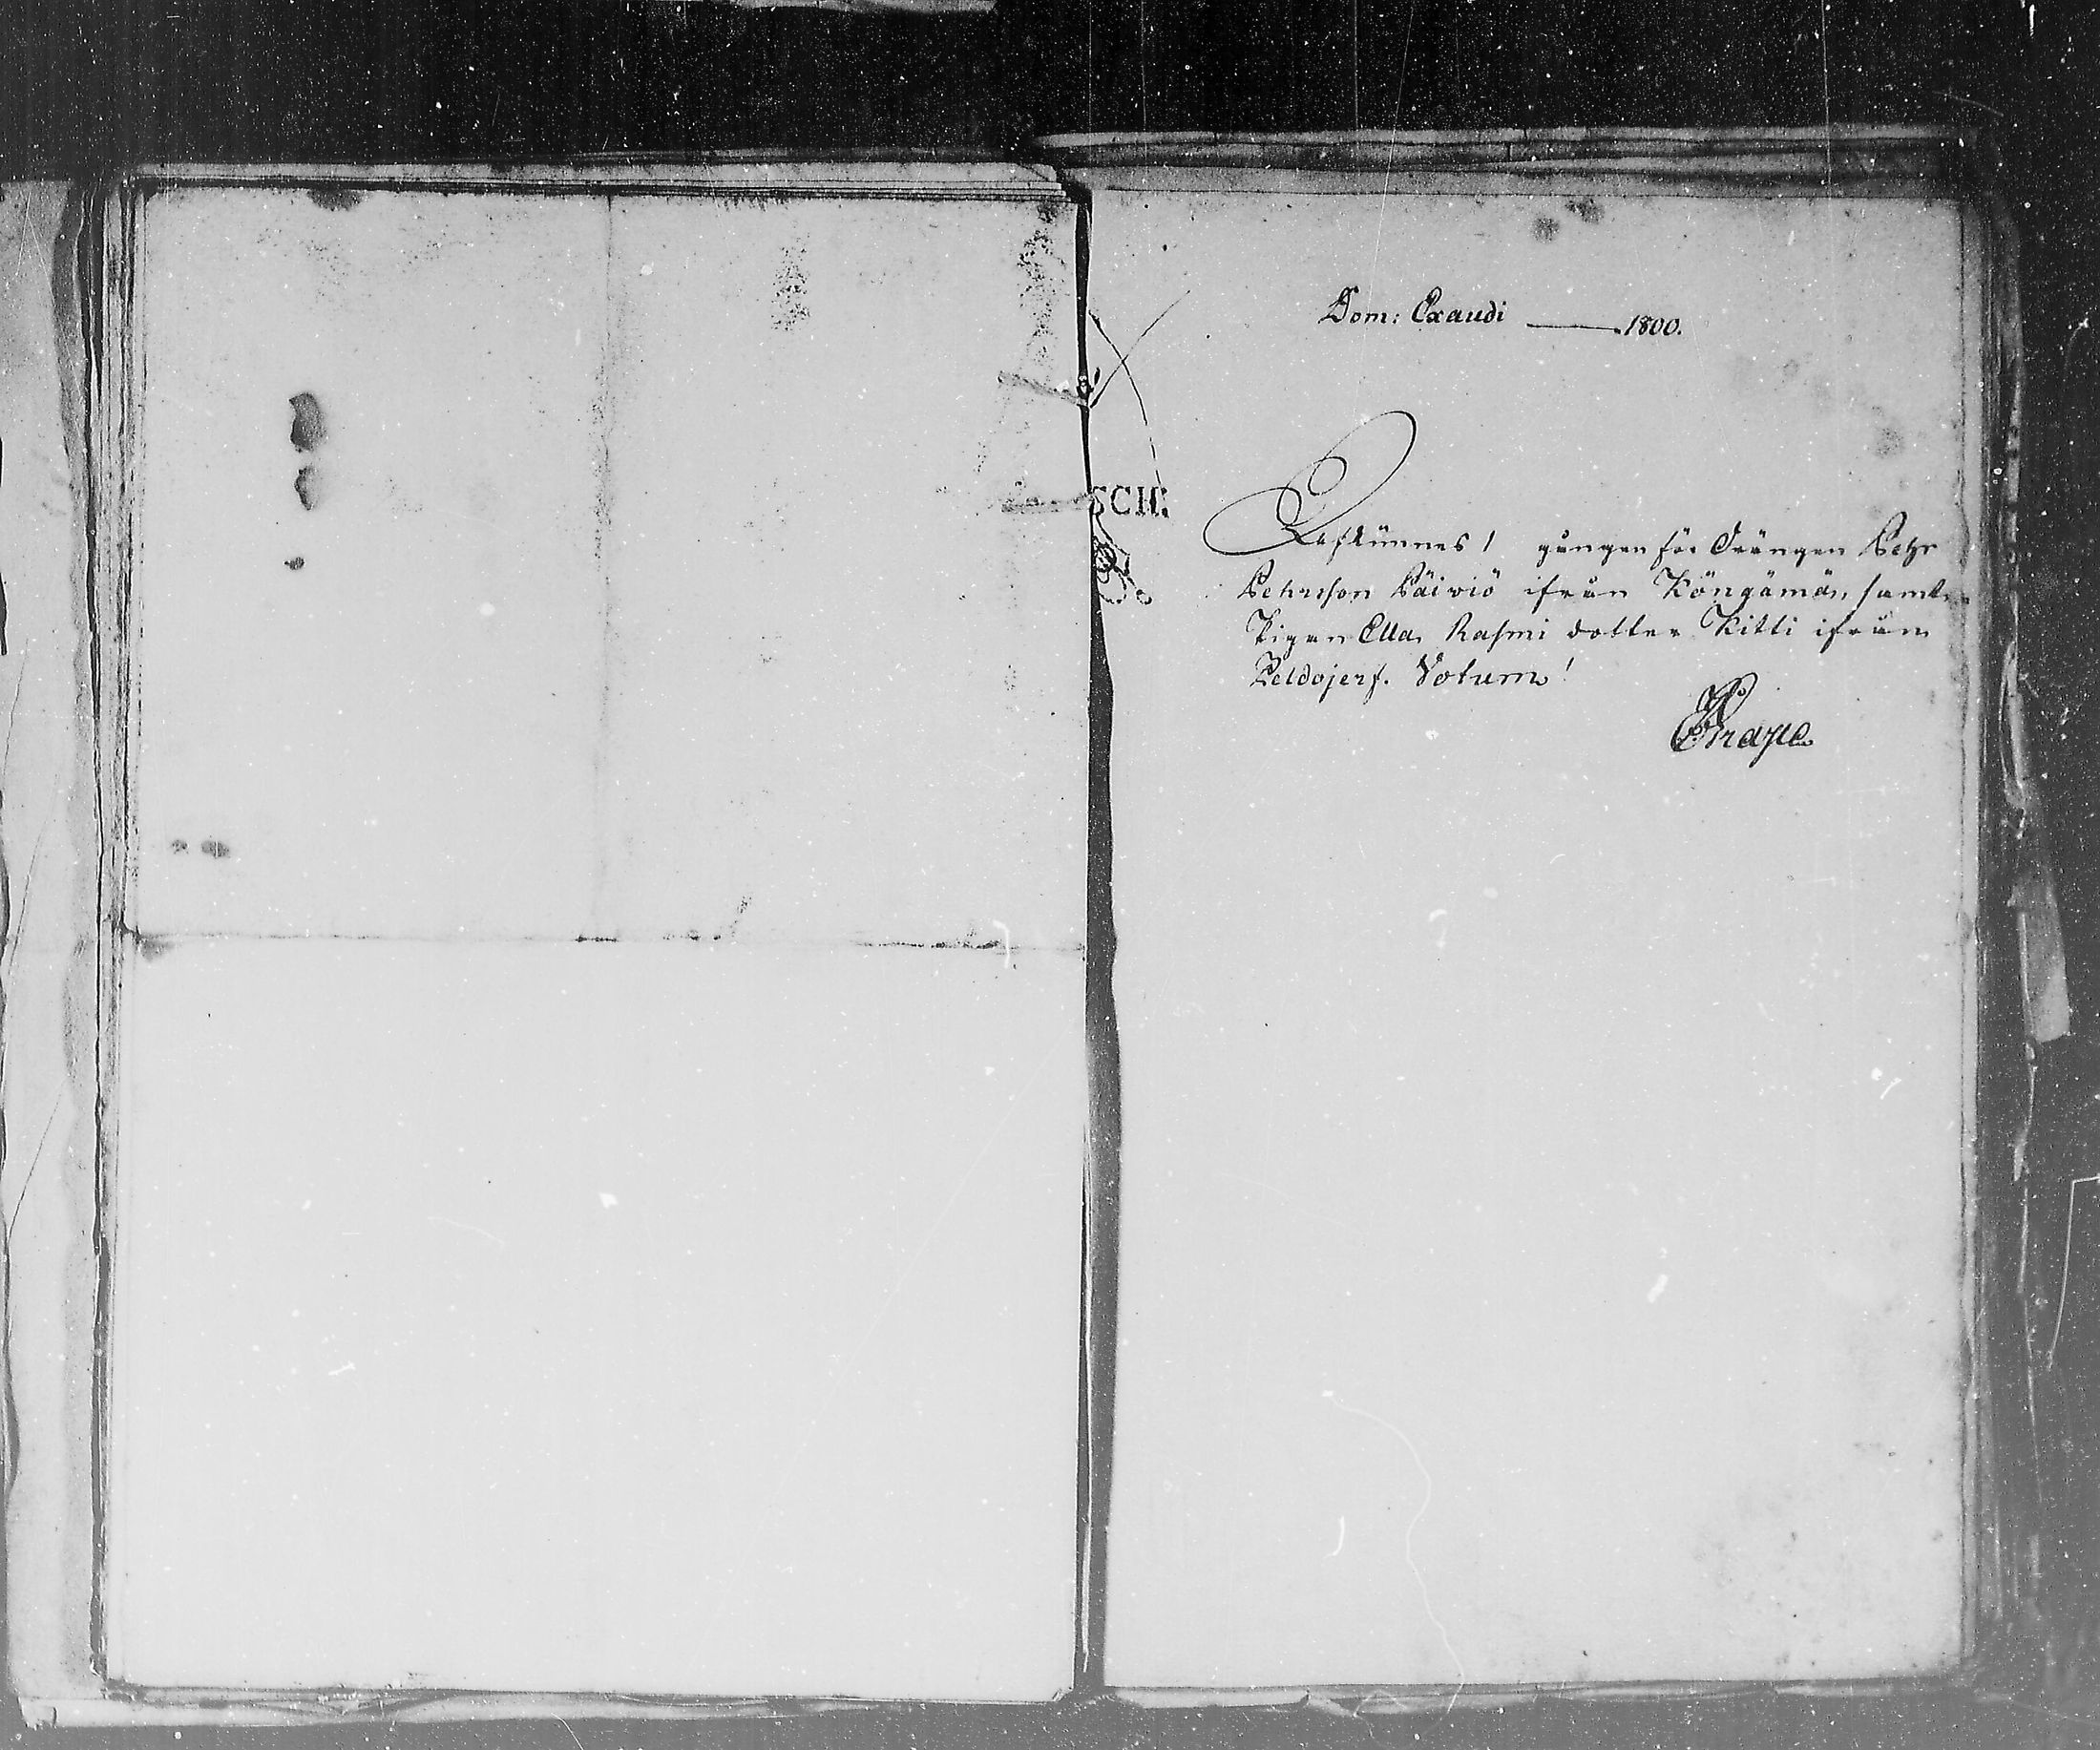 Dom: Exaudi ——— 1800.
SCH:
Lyskünnes 1 gången för Drängen Pehr
Pehrsson Päiviö ifrån Köngämä, samt
Pigan Ella Rasmi dotter Kitti ifrån
Peldojerf. Votum!